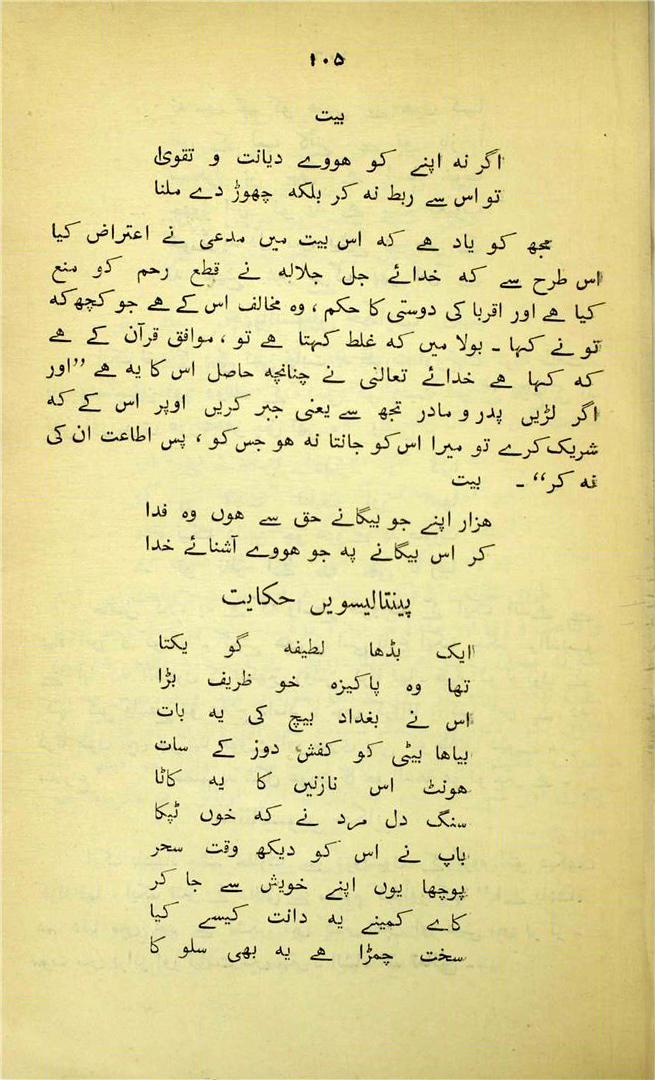 ۱۰۵
بیت
اگر نہ اپنے کو ھووے دیانت و تقویٰ
تو اس سے ربط نہ کر بلکہ چھوڑ دے ملنا
مجھ کو یاد ھے کہ اس بیت میں مدعی نے اعتراض کیا
اس طرح سے کہ خدائے جل جلالہ نے قطع رحم کو منع
کیا ھے اور اقربا کی دوستی کا حکم ، وہ مخالف اس کے ھے جو کچھ کہ
تو نے کہا ۔ بولا میں کہ غلط کہتا ھے تو ، موافق قرآن کے ھے
کہ کہا ھے خدائے تعالیٰ نے چنانچہ حاصل اس کا یہ ھے ”اور
اگر لڑیں پدر و مادر تجھ سے یعنی جبر کریں اوپر اس کے کہ
شریک کرے تو میرا اس کو جانتا نہ ھو جس کو ، پس اطاعت ان کی
نہ کر“ ۔ بیت
ھزار اپنے جو بیگانے حق سے ھوں وہ فدا
کر اس بیگانے پہ جو ھووے آشنائے خدا
پینتالیسویں حکایت
ایک بڈھا لطیفہ گو یکتا
تھا وہ پاکیزہ خو ظریف بڑا
اس نے بغداد بیچ کی یہ بات
بیاھا بیٹی کو کفش دوز کے سات
ھونٹ اس نازنیں کا یہ کاٹا
سنگ دل مرد نے کہ خوں ٹپکا
باپ نے اس کو دیکھ وقت سحر
پوچھا یوں اپنے خویش سے جا کر
کاے کمینے یہ دانت کیسے کیا
سخت چمڑا ھے یہ بھی سلو کا